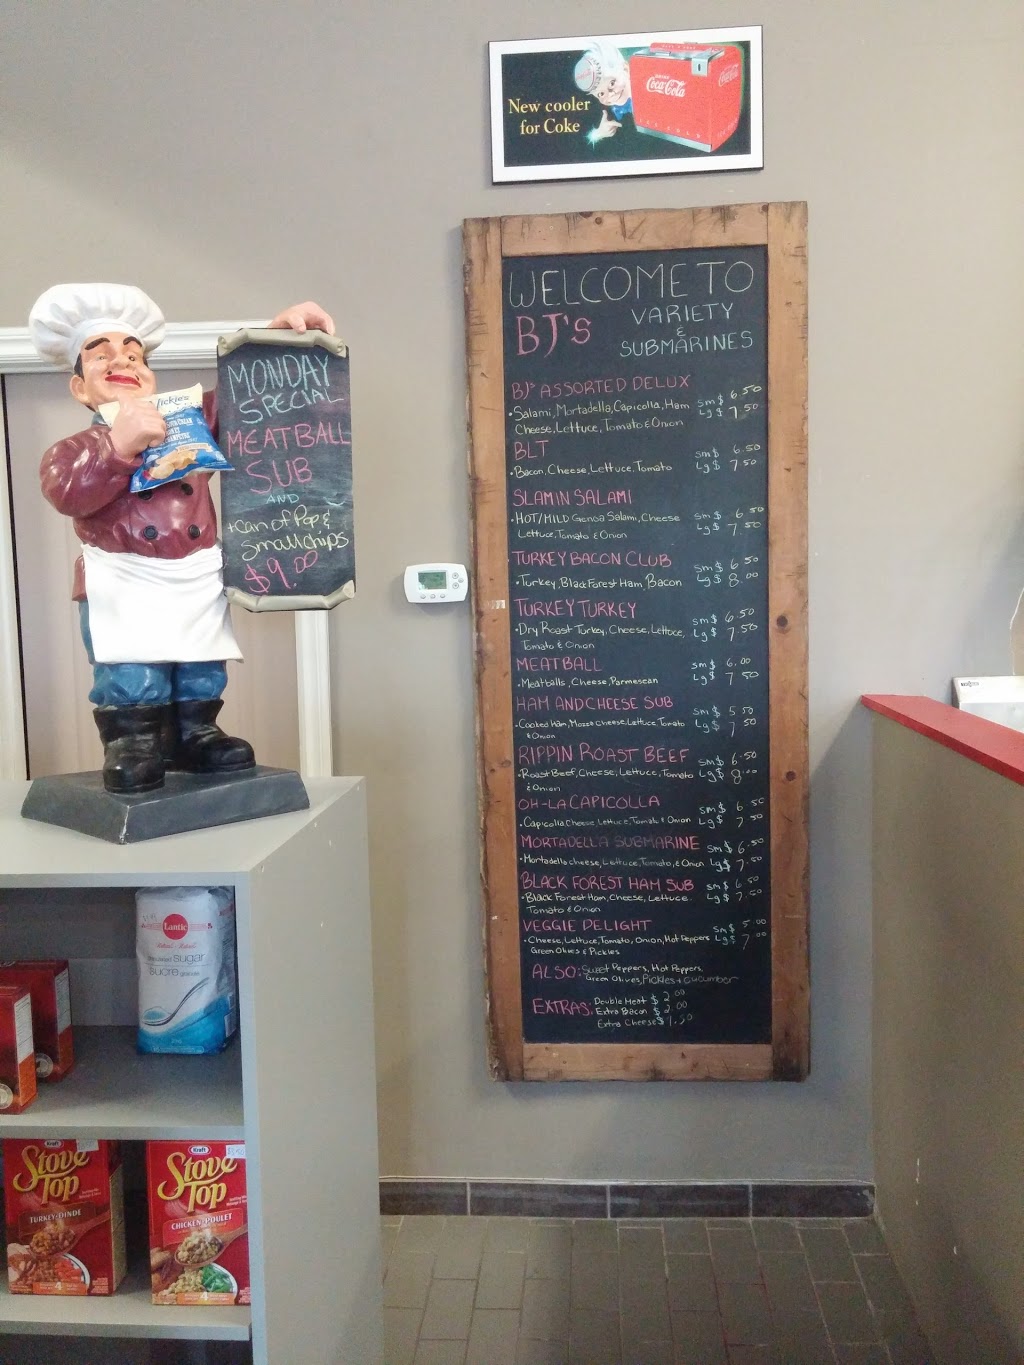 New cooler
for Coke
DRINK
Coca-Cola
ICE COLD
Coca-Cola
WELCOME TO
BJ's
VARIETY
&
SUBMARINES
BJ's ASSORTED DELUX
• Salami, Mortadella, Capicolla, Ham
Cheese, Lettuce, Tomato & Onion
sm $ 6.50
Lg $ 7.50
BLT
• Bacon, Cheese, Lettuce, Tomato
sm $ 6.50
Lg $ 7.50
SLAMIN SALAMI
• HOT/MILD Genoa Salami, Cheese
Lettuce, Tomato & Onion
sm $ 6.50
Lg $ 7.50
TURKEY BACON CLUB
• Turkey, Black Forest Ham, Bacon
sm $ 6.50
Lg $ 8.00
TURKEY TURKEY
• Dry Roast Turkey, Cheese, Lettuce,
Tomato & Onion
sm $ 6.50
Lg $ 7.50
MEATBALL
• Meatballs, Cheese, Parmesean
sm $ 6.00
Lg $ 7.50
HAM AND CHEESE SUB
• Cooked Ham, Mozza Cheese, Lettuce, Tomato
& Onion
sm $ 5.50
Lg $ 7.50
RIPPIN ROAST BEEF
• Roast Beef, Cheese, Lettuce, Tomato
& Onion
sm $ 6.50
Lg $ 8.00
OH-LA CAPICOLLA
• Capicolla, Cheese, Lettuce, Tomato & Onion
sm $ 6.50
Lg $ 7.50
MORTADELLA SUBMARINE
• Mortadella cheese, Lettuce, Tomato, & Onion
sm $ 6.50
Lg $ 7.50
BLACK FOREST HAM SUB
• Black Forest Ham, Cheese, Lettuce
Tomato & Onion
sm $ 6.50
Lg $ 7.50
VEGGIE DELIGHT
• Cheese, Lettuce, Tomato, Onion, Hot Peppers
Green Olives & Pickles
sm $ 5.00
Lg $ 7.00
ALSO: Sweet Peppers, Hot Peppers,
Green Olives, Pickles + cucumber
EXTRAS: Double Meat $ 2.00
Extra Bacon $ 2.00
Extra Cheese $ 1.50
MONDAY
SPECIAL
MEATBALL
SUB
AND
+ can of Pop &
Small chips
$9.00
Vickie's
Lantic
sugar
sucre
Kraft
Stove
Top
TURKEY-DINDE
4
Kraft
Stove
Top
CHICKEN-POULET
4